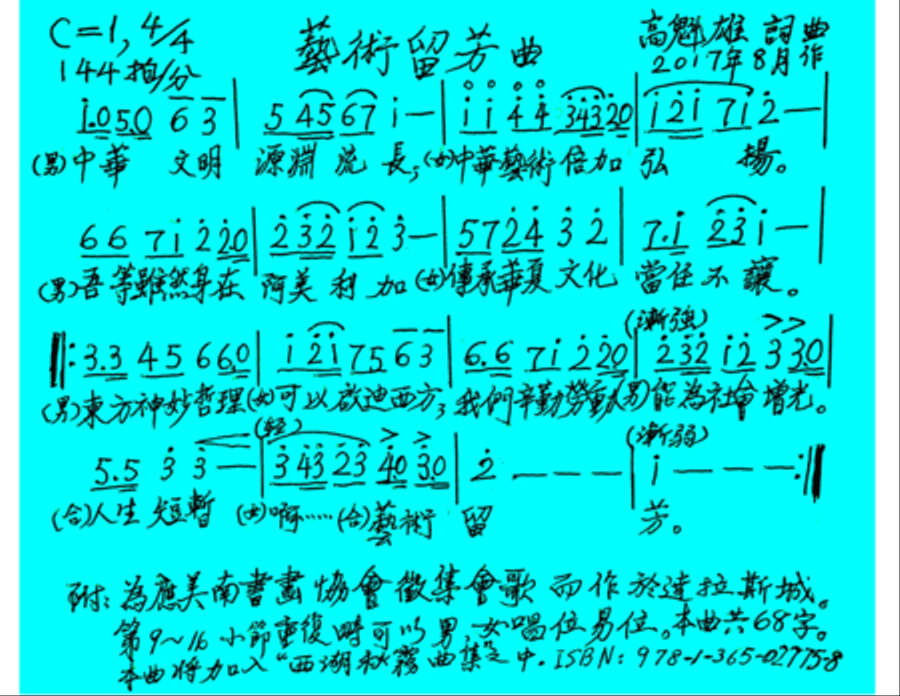 C=1, 4/4 藝術留芳曲 高魁雄 詞曲
144拍/分 2017年8月作
1.0 5.0 6 3 | 5 45 67 i — | i i 4 4 343 20 | i2i 7i 2 — |
(男)中華 文明 源淵流長,(女)中華藝術倍加弘 揚。
66 7i 2 20 | 2 32 i2 3 — | 57 24 3 2 | 7.i 23 i — |
(男)吾等雖然身在 阿美利加 (女)傳承華夏文化 當任不讓。
(漸強) >>
‖: 3.3 45 660 | i 2i 75 63 | 6.6 7i 2 20 | 2 32 i2 3 30 |
(男)東方神妙哲理(女)可以啟迪西方,我們辛勤勞動(男)能為社會增光。
(輕) > > (漸弱)
5.5 3 3 — | 3 43 23 40 30 | 2 — — — | i — — — :‖
(合)人生短暫 (女)啊……(合)藝術 留 芳。
附:為應美南書畫協會徵集會歌而作於達拉斯城。
第9~16小節重復時可以男,女唱位易位。本曲共68字。
本曲將加入“西湖秋霧曲集”之中.ISBN:978-1-365-02775-8